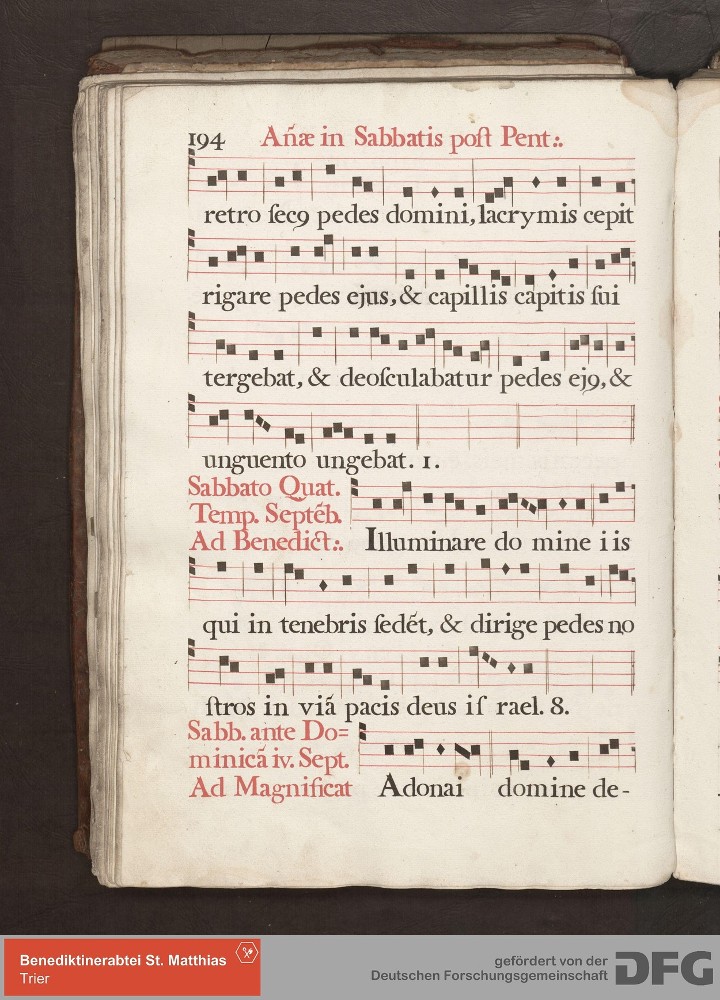 194 Añæ in Sabbatis poſt Pent:.
retro ſecꝯ pedes domini, lacrymis cepit
rigare pedes ejus, & capillis capitis ſui
tergebat, & deoſculabatur pedes ejꝯ, &
unguento ungebat. 1.
Sabbato Quat.
Temp. Septẽb.
Ad Benedict:. Illuminare do mine i is
qui in tenebris ſedẽt, & dirige pedes no
ſtros in viã pacis deus iſ rael. 8.
Sabb. ante Do=
minicã iv. Sept.
Ad Magnificat Adonai domine de-
Benediktinerabtei St. Matthias
Trier
gefördert von der
Deutschen Forschungsgemeinschaft DFG